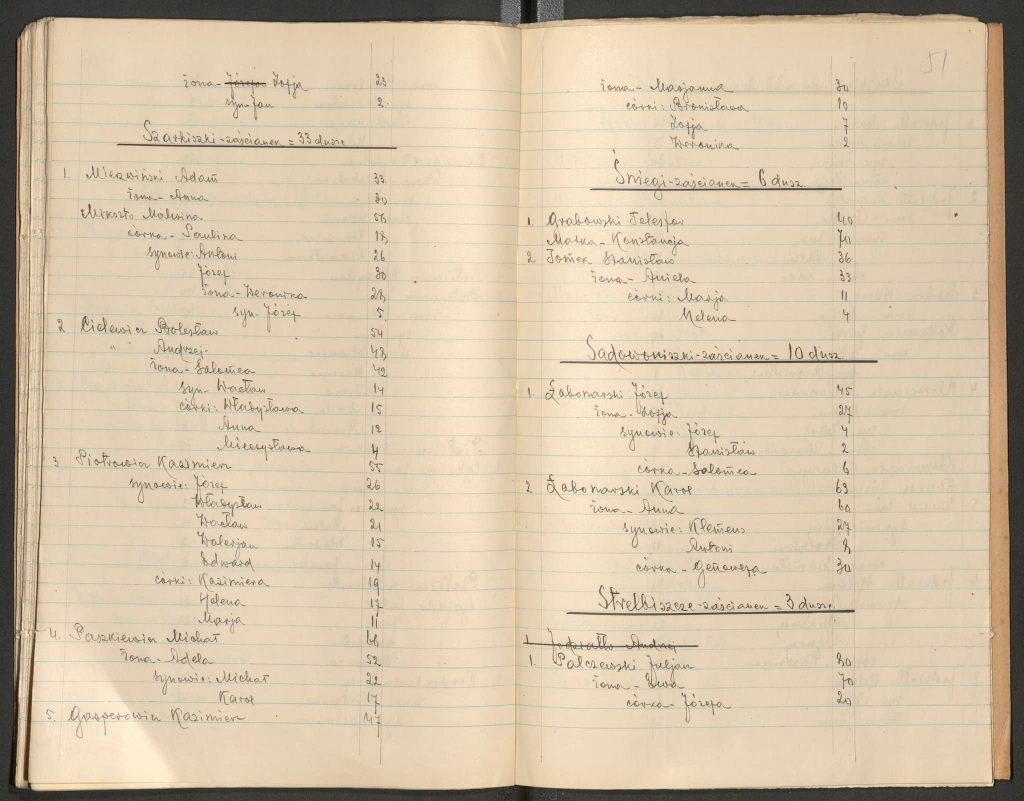 żona - ~~Józefa~~ Zofja 23
syn - Jan 2
Szarkiszki - zaścianek = 33 dusze
1. Mierwiński Adam 33
żona - Anna 30
Mikszto Malwina 56
córka - Paulina 18
synowie: Antoni 26
Józef 30
żona - Weronika 28
syn - Józef 5
2 Cidewicz Bolesław 54
" " Andrzej 48
żona - Salomea 42
syn - Wacław 14
córki: Władysława 15
Anna 12
Mieczysława 4
3 Piotrowicz Kazimierz 55
synowie: Józef 26
Władysław 22
Wacław 21
Walerjan 15
Edward 14
córki: Kazimiera 19
Helena 17
Marja 11
4. Paszkiewicz Michał 66
żona - Adela 52
synowie: Michał 22
Karol 17
5. Gasperowicz Kazimierz 47
51
żona - Marjanna 30
córki: Bronisława 10
Zofja 7
Weronika 2
Śniegi - zaścianek = 6 dusz
1. Grabowski Telesfor 40
Matka - Konstancja 70
2 Tomek Stanisław 36
żona - Aniela 33
córki: Marja 11
Helena 4
Sadowoniszki - zaścianek = 10 dusz
1. Żabonarski Józef 45
żona - Zofja 27
synowie: Józef 4
Stanisław 2
córka - Salomea 6
2 Żabonarski Karol 63
żona - Anna 60
synowie: Klemens 27
Antoni 8
córka - Genowefa 30
Strelbiszcze - zaścianek = 3 dusze
~~1. Jodziałło Andrzej~~
1. Palczewski Juljan 80
żona - Ewa 70
córka - Józefa 20